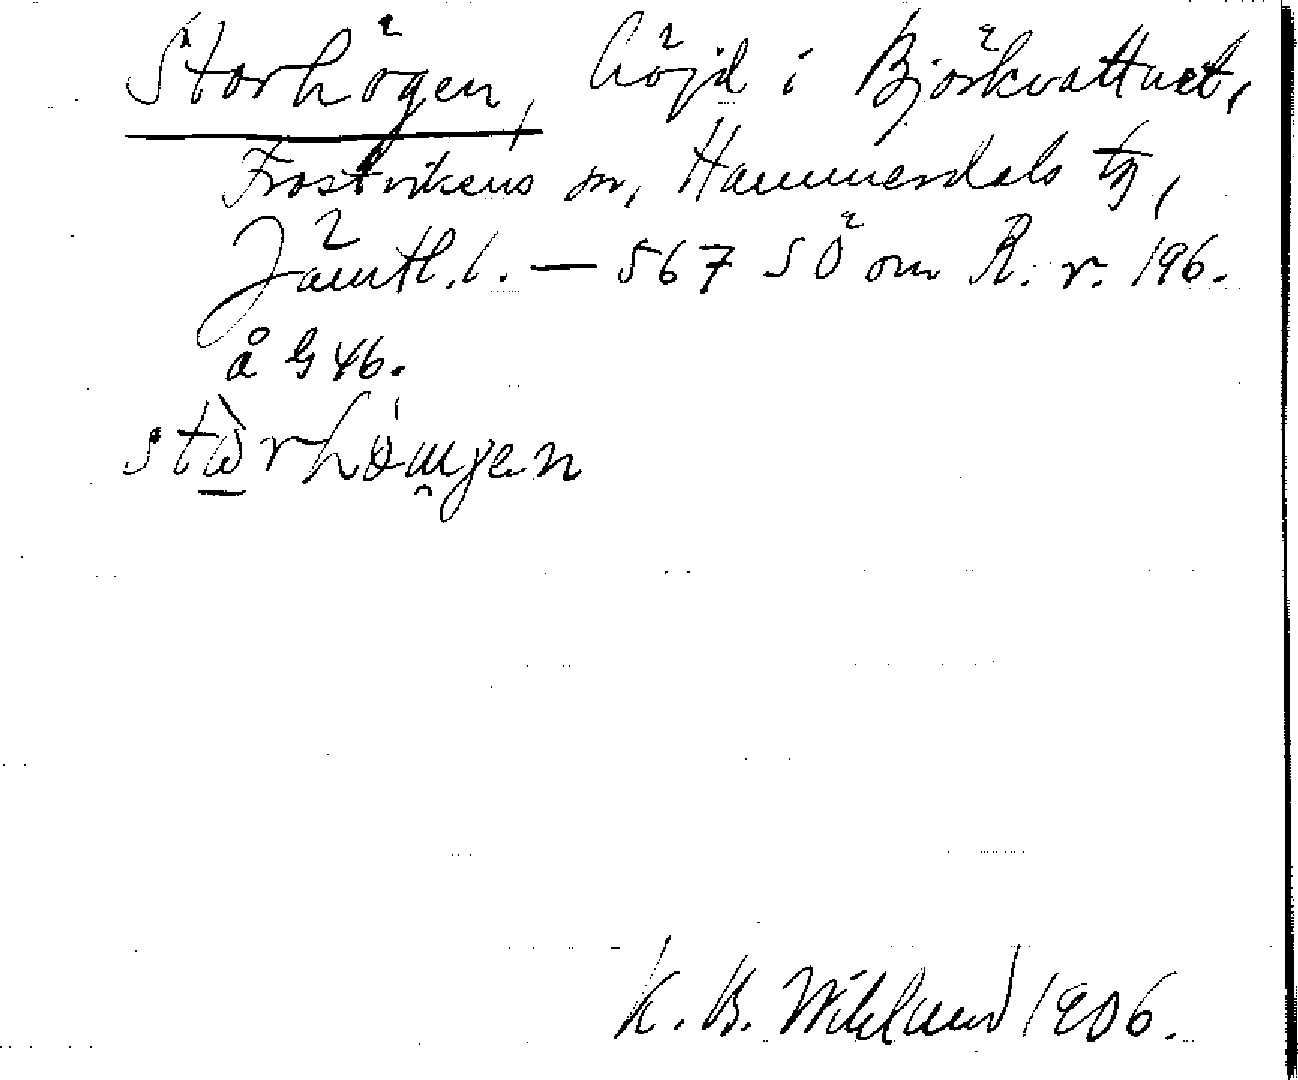 Storhögen, höjd i Björkvattnet,
Frostvikens sn, Hammerdals tg,
Jämtl. l. — 567 SÖ om R. r. 196.
å G 46.
K. B. Wiklund 1906.